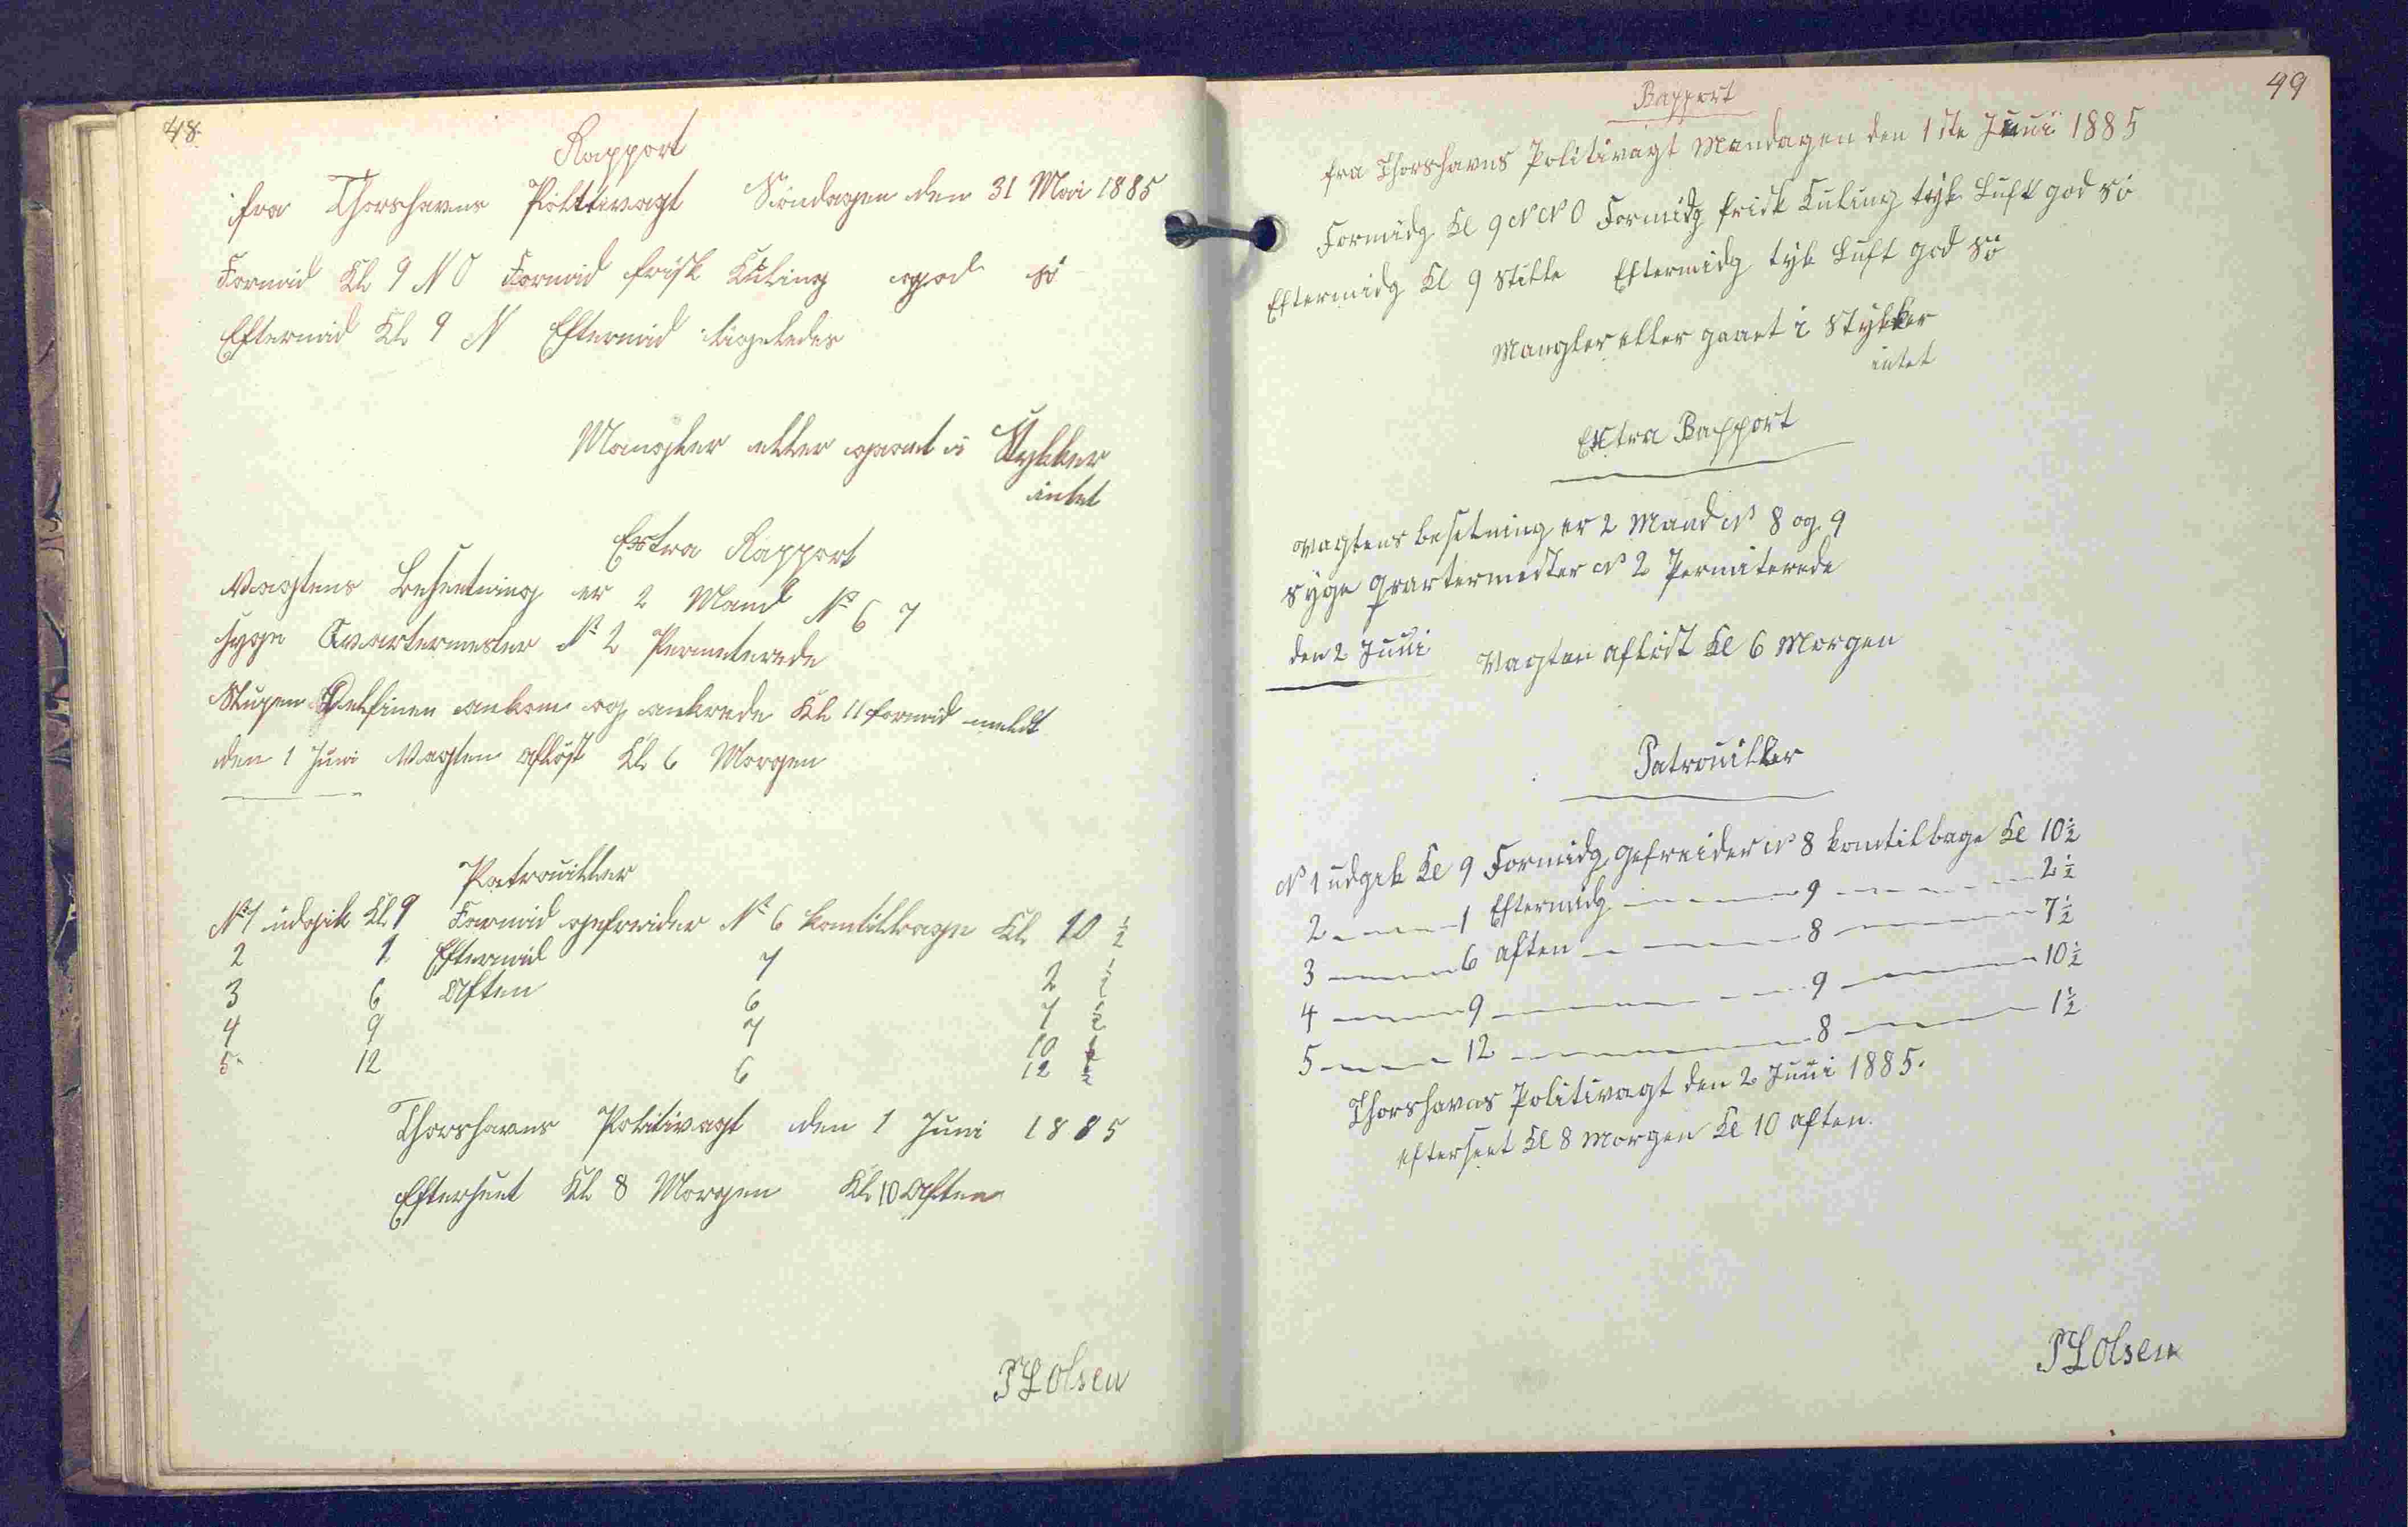 48.
Rapport
fra Thorshavns Politivagt Söndagen den 31 Mai 1885
Formid Kl 9 N O Formid frisk Kuling god sö
Eftermid Kl 9 N Eftermid ligeledes
Mangler eller gaaet i Stykker
intet
Extra Rapport
Vagtens Besetning er 2 Mand No 6 7
syge Qvartermester No 2 Permeterede
Slupen Delfinen ankom og ankrede Kl 11 formid meldt
den 1 Juni Vagten aflöst Kl 6 Morgen
Patrouiller
No 1 udgik Kl 9 Formid gefreider No 6 komtilbage Kl 10 ½
2 1 Eftermid 7 2 ½
3 6 Aften 6 7 ½
4 9 7 10 ½
5 12 6 12 ½
Thorshavns Politivagt den 1 Juni 1885
Efterseet Kl 8 Morgen Kl 10 Aften
P L Olsen
49
Rapport
fra Thorshavns Politivagt Mandagen den 1ste Juni 1885
Formidg Kl 9 N N O Formidg frisk Kuling tyk Luft god Sö
Eftermidg Kl 9 Stille Eftermidg tyk Luft god Sö
Mangler eller gaaet i Stykker
intet
Extra Rapport
Vagtens besetning er 2 Mand No 8 og 9
Syge Qvartermester No 2 Permiterede
den 2 Juni Vagten aflöst Kl 6 Morgen
Patrouiller
No 1 udgik Kl 9 Formidg gefreider No 8 komtilbage Kl 10½
2 — 1 Eftermidg — 9 — 2½
3 — 6 Aften — 8 — 7½
4 — 9 — 9 — 10½
5 — 12 — 8 — 1½
Thorshavns Politivagt den 2 Juni 1885.
efterseet Kl 8 Morgen Kl 10 aften.
P L Olsen